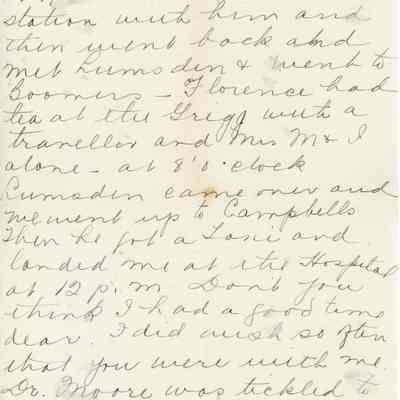 station with him and
then went back and
met Lumsden & went to
Boomers - Florence had
tea at the Grigg with a
traveller and Mrs M & I
alone - at 8 o'clock
Lumsden came over and
we went up to Campbells
Then he got a Taxi and
landed me at the Hospital
at 12 p.m Dont you
think I had a good time
dear. I did wish so often
that you were with me.
Dr. Moore was tickled to